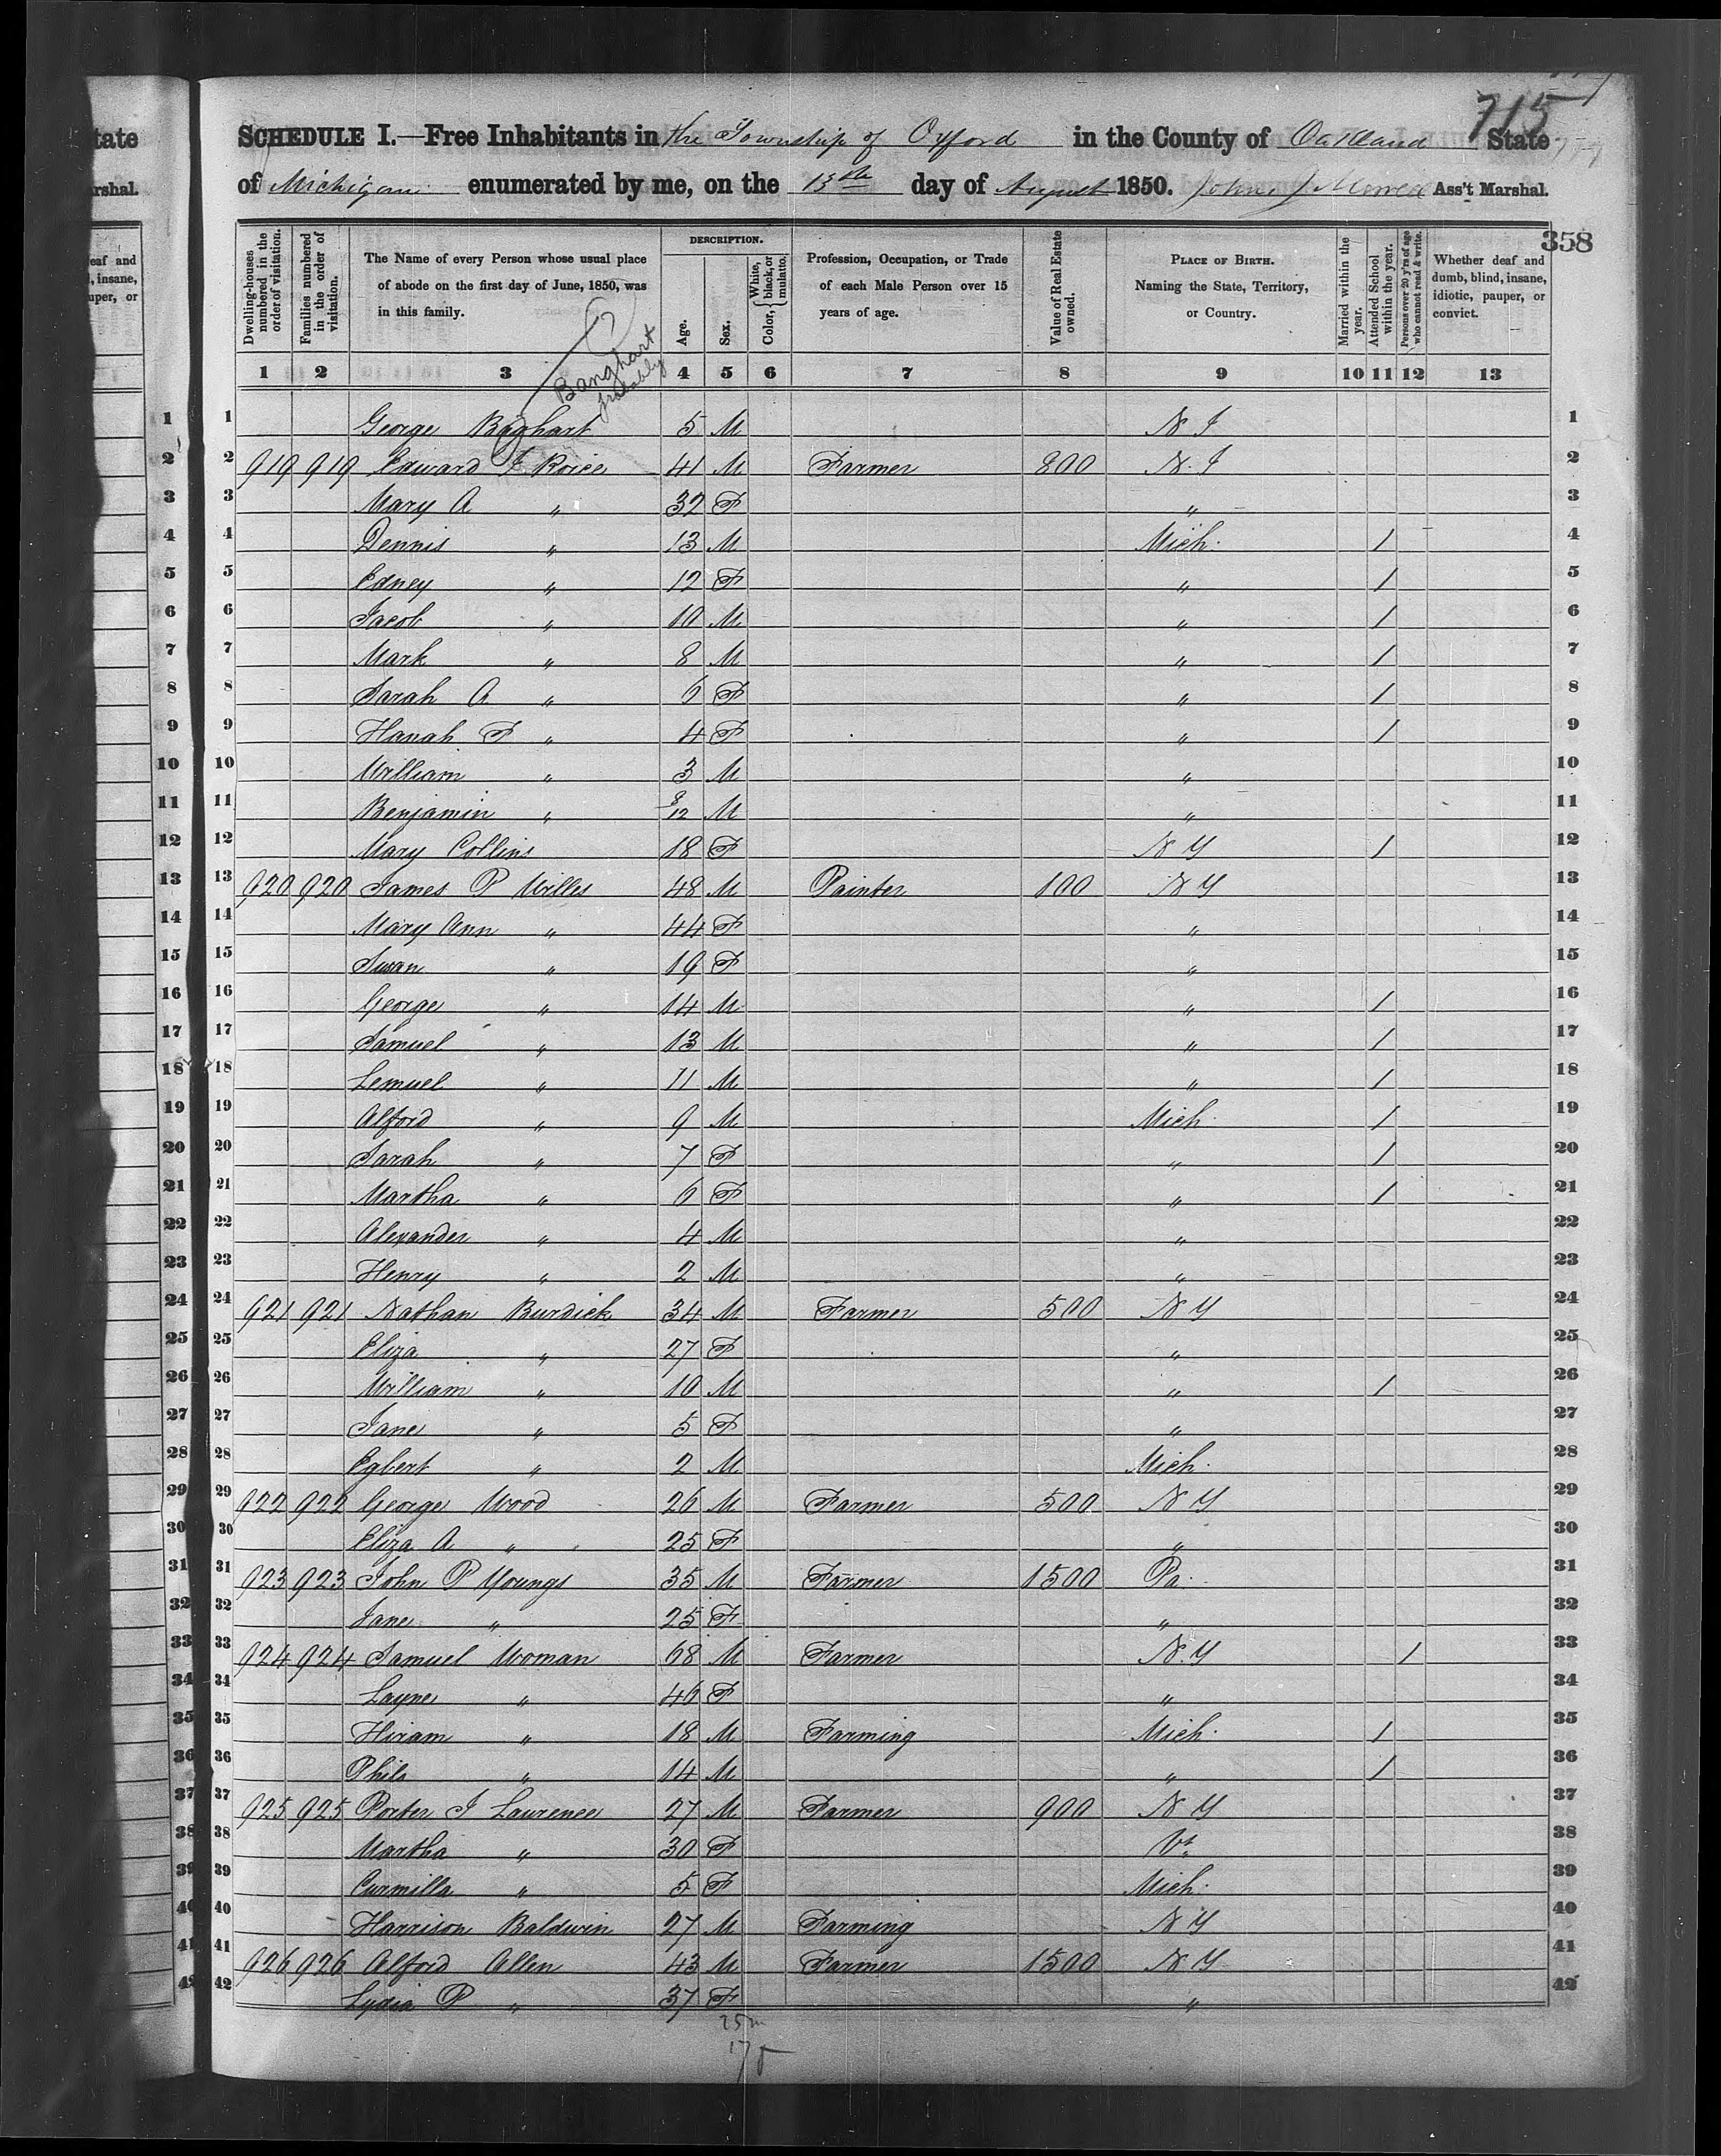 715
SCHEDULE I.—Free Inhabitants in the Township of Oxford in the County of Oakland State
of Michigan enumerated by me, on the 13th day of August 1850. John J Ass't Marshal.
358
Dwelling-houses numbered in the order of visitation. Families numbered in the order of visitation. The Name of every Person whose usual place of abode on the first day of June, 1850, was in this family. DESCRIPTION. Age. Sex. Color, { White, black, or mulatto. Profession, Occupation, or Trade of each Male Person over 15 years of age. Value of Real Estate owned. PLACE OF BIRTH. Naming the State, Territory, or Country. Married within the year. Attended School within the year. Persons over 20 y'rs of age who cannot read & write. Whether deaf and dumb, blind, insane, idiotic, pauper, or convict.
Banghart probably
1 2 3 4 5 6 7 8 9 10 11 12 13
1 George Baghart 5 M N J 1
2 919 919 Edward J Roice 41 M Farmer 800 N. J 2
3 Mary A " 32 F " 3
4 Dennis " 13 M Mich. 1 4
5 Edney " 12 F " 1 5
6 Jacob " 10 M " 1 6
7 Mark " 8 M " 1 7
8 Sarah A " 6 F " 1 8
9 Hanah F " 4 F " 1 9
10 William " 3 M " 10
11 Benjamin " 9/12 M " 11
12 Mary Collins 18 F N Y 1 12
13 920 920 James P Willes 48 M Painter 100 N Y 13
14 Mary Ann " 44 F " 14
15 Susan " 19 F " 15
16 George " 14 M " 1 16
17 Samuel " 13 M " 1 17
18 Lemuel " 11 M " 1 18
19 Alford " 9 M Mich. 1 19
20 Sarah " 7 F " 1 20
21 Martha " 6 F " 1 21
22 Alexander " 4 M " 22
23 Henry " 2 M " 23
24 921 921 Nathan Burdick 34 M Farmer 500 N Y 24
25 Eliza " 27 F " 25
26 William " 10 M " 1 26
27 Jane " 5 F " 27
28 Egbert " 2 M Mich. 28
29 922 922 George Wood 26 M Farmer 500 N Y 29
30 Eliza A " 25 F " 30
31 923 923 John P Youngs 35 M Farmer 1500 Pa. 31
32 Jane " 25 F " 32
33 924 924 Samuel Woman 68 M Farmer N. Y 1 33
34 Layne " 46 F " 34
35 Hiram " 18 M Farming Mich. 1 35
36 Philo " 14 M " 1 36
37 925 925 Porter J Laurence 27 M Farmer 900 N Y 37
38 Martha " 30 F Vt. 38
39 Curmilla " 5 F Mich. 39
40 Harrison Baldwin 27 M Farming N Y 40
41 926 926 Alford Allen 43 M Farmer 1500 N Y 41
42 Lydia P " 37 F " 42
25 m
17 f